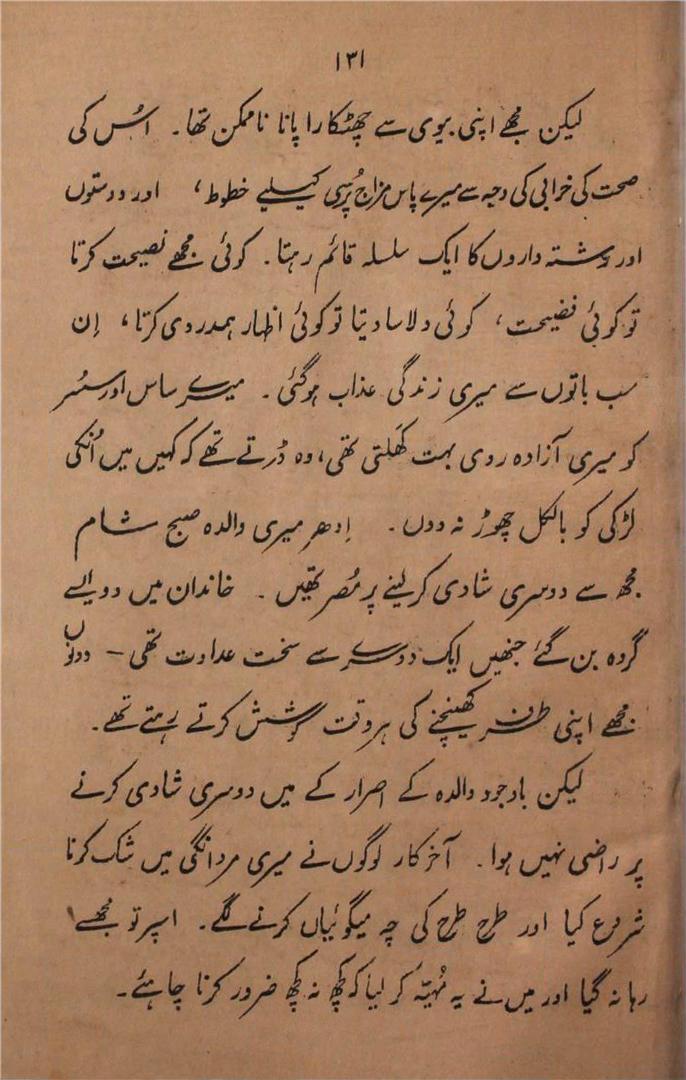 ۱۳۱
لیکن مجھے اپنی بیوی سے چھٹکارا پانا ناممکن تھا۔ اُس کی
صحت کی خرابی کی وجہ سے میرے پاس مزاج پُرسی کیلئے خطوط، اور دوستوں
اور رشتہ داروں کا ایک سلسلہ قائم رہتا۔ کوئی مجھے نصیحت کرتا
تو کوئی فضیحت، کوئی دلاسا دیتا تو کوئی اظہار ہمدردی کرتا، اِن
سب باتوں سے میری زندگی عذاب ہوگئی۔ میرے ساس اور سُسر
کو میری آزادہ روی بہت کَھلتی تھی، وہ ڈرتے تھے کہ کہیں میں اُنکی
لڑکی کو بالکل چھوڑ نہ دوں۔ اِدھر میری والدہ صبح شام
مجھ سے دوسری شادی کرلینے پر مُصر تھیں۔ خاندان میں دو ایسے
گروہ بن گئے جنھیں ایک دوسرے سے سخت عداوت تھی – دونوں
مجھے اپنی طرف کھینچنے کی ہر وقت کوشش کرتے رہتے تھے۔
لیکن باوجود والدہ کے اصرار کے میں دوسری شادی کرنے
پر راضی نہیں ہوا۔ آخر کار لوگوں نے میری مردانگی میں شک کرنا
شروع کیا اور طرح طرح کی چہ میگوئیاں کرنے لگے۔ اسپر تو مجھسے
رہا نہ گیا اور میں نے یہ مُہیّہ کر لیا کہ کچھ نہ کچھ ضرور کرنا چاہئے۔